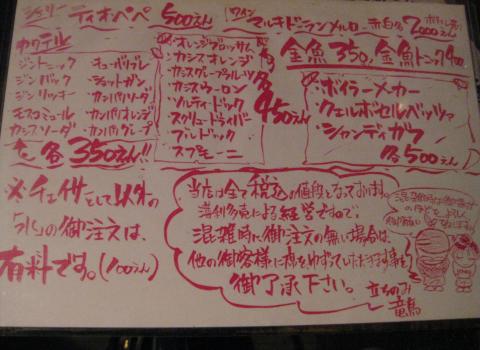 シェリー ティオペペ 500えん
ワイン マルキドーランメルロー 赤白各 2000えん
カクテル
ジントニック ・キューバリブレ
ジンバック ・ショットガン
ジンリッキー ・カンパリソーダ
モスコミュール ・カンパリオレンジ
カシスソーダ ・カンパリグレープ
各350えん!!
・オレンジブロッサム
・カシスオレンジ
・カシスグレープフルーツ
・カシスウーロン
・ソルティードッグ
・スクリュードライバー
・ブルドッグ
・スプモーニ
各450えん
金魚350, 金魚トニック400
・ボイラーメーカー
・クェルボセルベッツァ
・シャンディガフ
各500えん
※チェイサーとして以外の
お水の御注文は、
有料です。(100えん)
当店は全て税込の値段となっております。
薄利多売による経営ですので、
混雑時に御注文の無い場合は、
他の御客様に席をゆずっていただきます事を
御了承下さい。
立ちのみ
竜馬